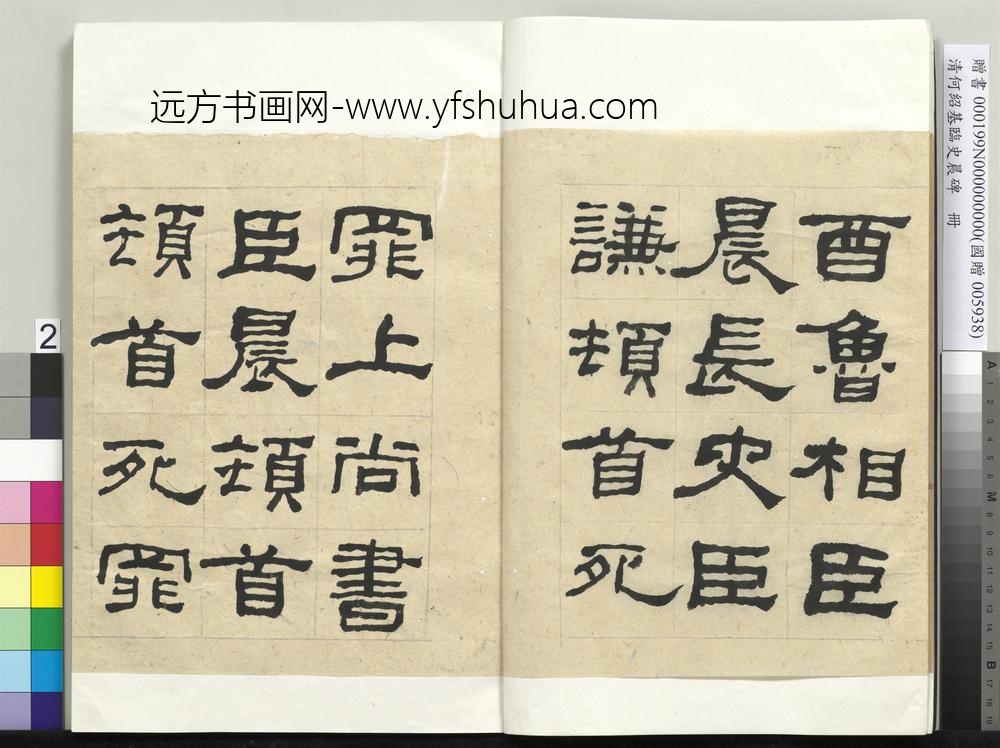 远方书画网-www.yfshuhua.com
酉魯相臣
晨長史臣
謙頓首死
罪上尚書
臣晨頓首
頓首死罪
贈書 000199N000000000(國贈 005938)
清何紹基臨史晨碑 冊
2
A 1 2 3 4 5 6 M 8 9 10 11 12 13 14 15 B 17 18 19